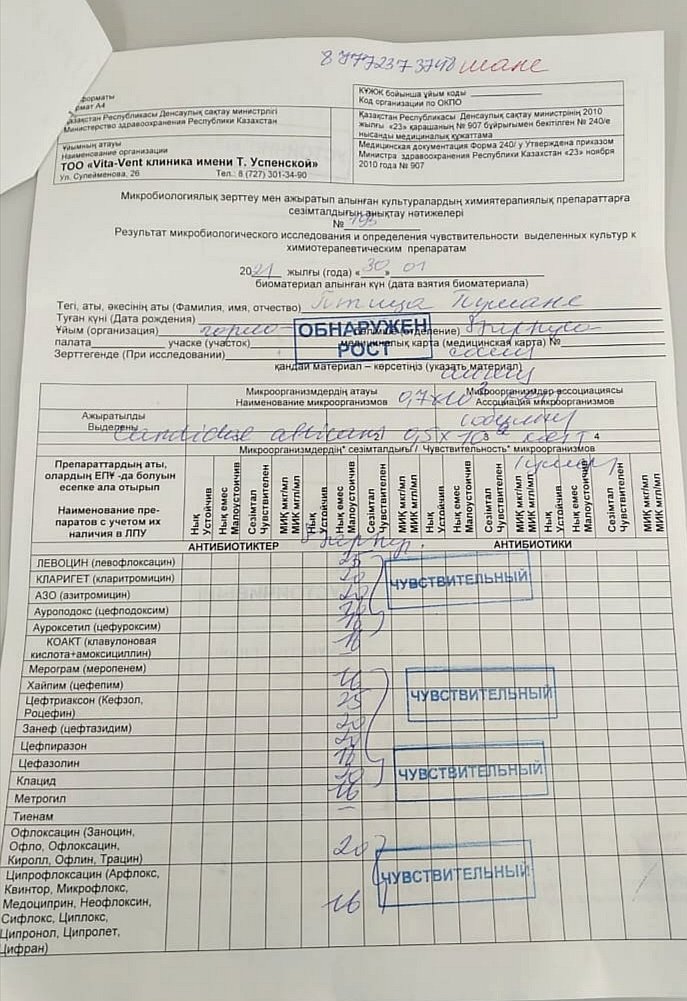 87772373748
форматы
рмат А4
Қазақстан Республикасы Денсаулық сақтау министрлігі
Министерство здравоохранения Республики Казахстан
КҰЖЖ бойынша ұйым коды
Код организации по ОКПО
Ұйымның атауы
Наименование организации
ТОО «Vita-Vent клиника имени Т. Успенской»
Ул. Сулейменова, 26 Тел.: 8 (727) 301-34-90
Қазақстан Республикасы Денсаулық сақтау министрінің 2010
жылғы «23» қарашаның № 907 бұйрығымен бекітілген № 240/е
нысанды медициналық құжаттама
Медицинская документация Форма 240/ у Утверждена приказом
Министра здравоохранения Республики Казахстан «23» ноября
2010 года № 907
Микробиологиялық зерттеу мен ажыратып алынған культуралардың химиятерапиялық препараттарға
сезімталдығын анықтау нәтижелері
№ 193
Результат микробиологического исследования и определения чувствительности выделенных культур к
химиотерапевтическим препаратам
2021 жылғы (года) «30» 01
биоматериал алынған күн (дата взятия биоматериала)
Тегі, аты, әкесінің аты (Фамилия, имя, отчество)
Туған күні (Дата рождения)
Ұйым (организация) бөлімше (отделение)
палата учаске (участок) медициналық карта (медицинская карта) №
ОБНАРУЖЕН
РОСТ
Зерттегенде (При исследовании)
қандай материал – көрсетіңіз (указать материал)
Микроорганизмдердің атауы
Наименование микроорганизмов
Микроорганизмдер ассоциациясы
Ассоциация микроорганизмов
Ажыратылды
Выделены
candidae albicans 0,5 x 10
3 4
Микроорганизмдердің* сезімталдығы / Чувствительность* микроорганизмов
Препараттардың аты,
олардың ЕПҰ -да болуын
есепке ала отырып
Наименование пре-
паратов с учетом их
наличия в ЛПУ
Нық Устойчив
Нық емес Малоустойчив
Сезімтал Чувствителен
МИҚ мкг/мл МИК мгп/мл
Нық Устойчив
Нық емес Малоустойчив
Сезімтал Чувствителен
МИҚ мкг/мл МИК мгп/мл
Нық Устойчив
Нық емес Малоустойчив
Сезімтал Чувствителен
МИҚ мкг/мл МИК мгп/мл
Нық Устойчив
Нық емес Малоустойчив
Сезімтал Чувствителен
МИҚ мкг/мл МИК мгп/мл
АНТИБИОТИКТЕР АНТИБИОТИКИ
ЛЕВОЦИН (левофлоксацин) 25
КЛАРИГЕТ (кларитромицин) 20
АЗО (азитромицин) 20
ЧУВСТВИТЕЛЬНЫЙ
Ауроподокс (цефподоксим) 20
Ауроксетил (цефуроксим) 18
КОАКТ (клавулоновая
кислота+амоксициллин) 16
Мерограм (меропенем)
Хайпим (цефепим) 16
Цефтриаксон (Кефзол,
Роцефин) 25
ЧУВСТВИТЕЛЬНЫЙ
Занеф (цефтазидим) 20
Цефпиразон
Цефазолин 18
ЧУВСТВИТЕЛЬНЫЙ
Клацид 20
Метрогил 16
Тиенам –
Офлоксацин (Заноцин,
Офло, Офлоксацин,
Киролл, Офлин, Трацин) 20
ЧУВСТВИТЕЛЬНЫЙ
Ципрофлоксацин (Арфлокс,
Квинтор, Микрофлокс,
Медоциприн, Неофлоксин,
Сифлокс, Циплокс,
Ципронол, Ципролет,
Цифран) 16